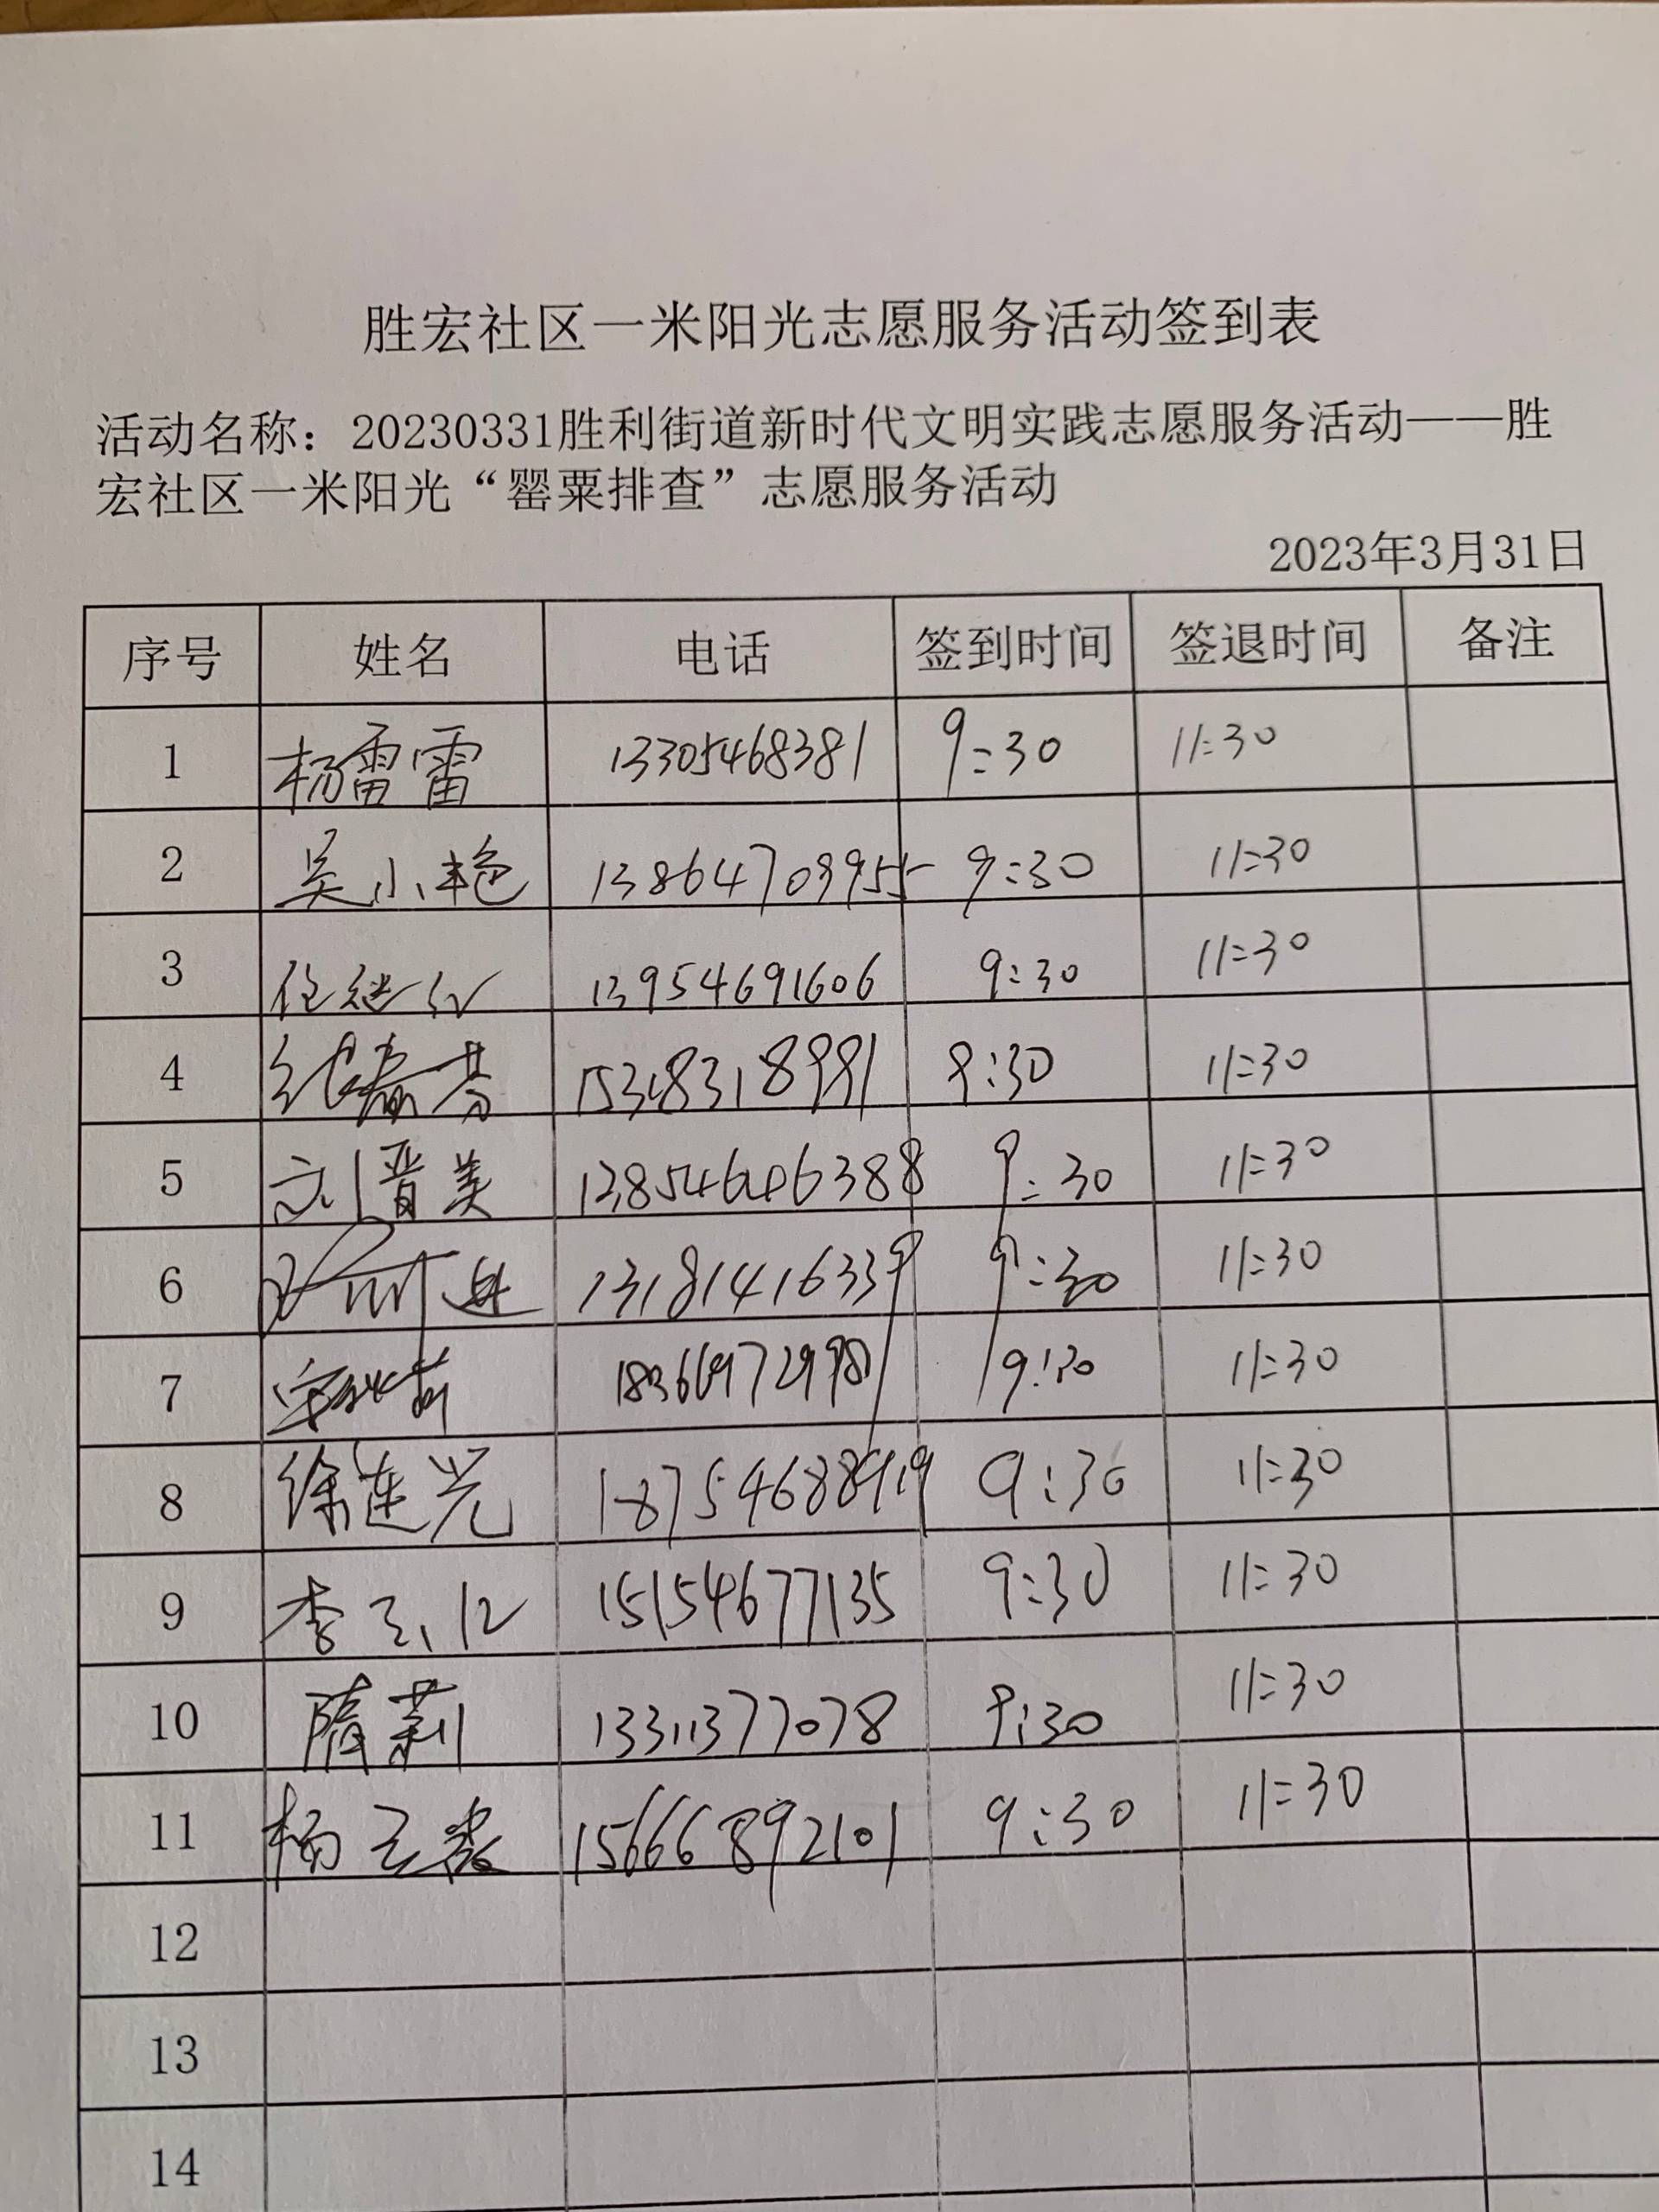 胜宏社区一米阳光志愿服务活动签到表
活动名称：20230331胜利街道新时代文明实践志愿服务活动——胜
宏社区一米阳光“罂粟排查”志愿服务活动
2023年3月31日
序号 姓名 电话 签到时间 签退时间 备注
1 杨雷雷 13305468381 9:30 11:30
2 吴小艳 13864709955 9:30 11:30
3 13954691606 9:30 11:30
4 15318318991 9:30 11:30
5 刘晋美 13854606388 9:30 11:30
6 13181416339 9:30 11:30
7 9:30 11:30
8 徐连光 18754688919 9:30 11:30
9 李 15154677135 9:30 11:30
10 隋莉 13311377078 9:30 11:30
11 杨 15666892101 9:30 11:30
12
13
14